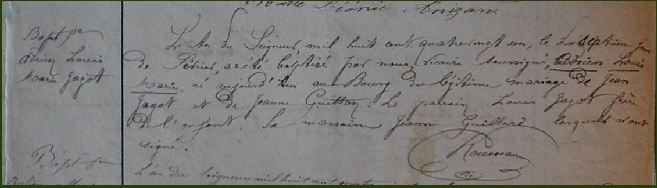 Bapt me
Adrien Louis
Marie Jagot
L'an du Seigneur, mil huit cent quatrevingt un, le dix septième jour
de Février, a été baptisé par nous, vicaire soussigné, Adrien Louis
Marie, né aujourd'hui au Bourg du légitime mariage de Jean
Jagot et de Jeanne Guittard. Le parrain Louis Jagot frère
de l'enfant, la marraine Jeanne Guittard lesquels n'ont
signé.
Bapt me
L'an du Seigneur mil huit cent quatre